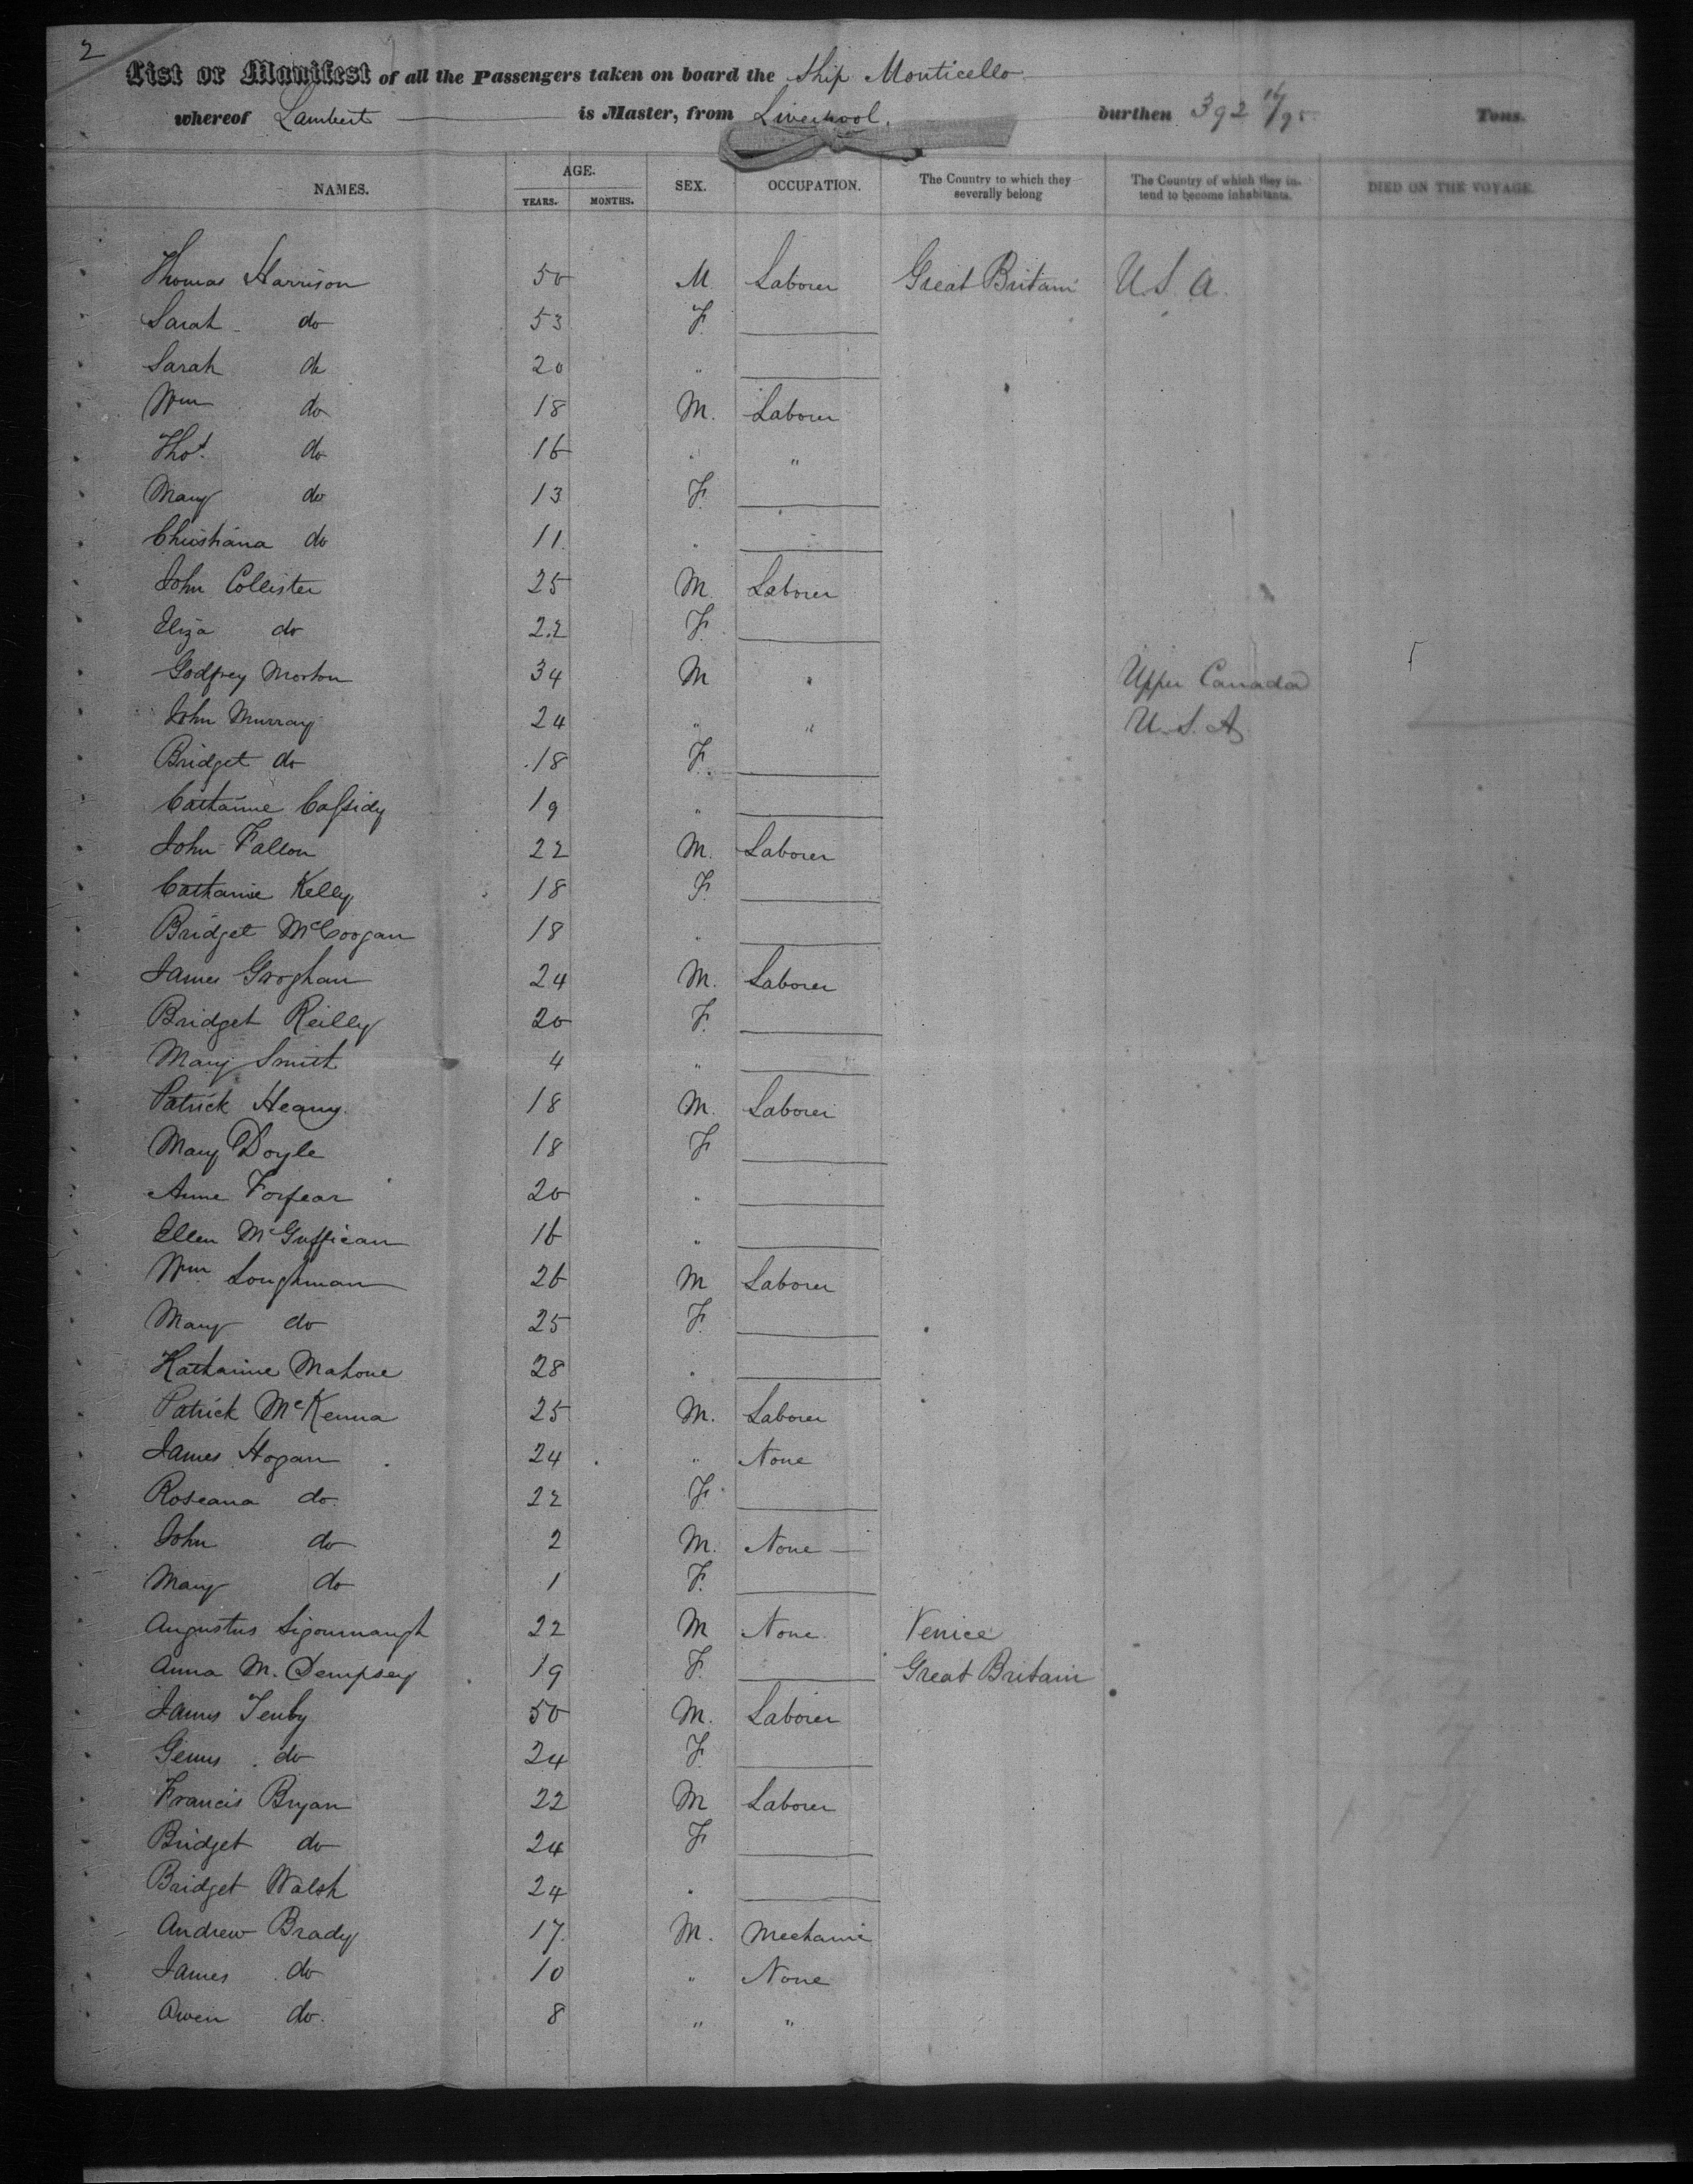 2
List or Manifest of all the Passengers taken on board the Ship Monticello
whereof Lambert is Master, from Liverpool. burthen 392 16/95 Tons.
NAMES. AGE. YEARS. MONTHS. SEX. OCCUPATION. The Country to which they severally belong The Country of which they intend to become inhabitants. DIED ON THE VOYAGE.
Thomas Harrison 50 M. Laborer Great Britain U.S.A.
Sarah do 53 F.
Sarah do 20 "
Wm do 18 M. Laborer
Thos. do 16 " "
Mary do 13 F.
Christiana do 11 "
John Collister 25 M. Laborer
Eliza do 22 F.
Godfrey Morton 34 M " Upper Canada
John Murray 24 " " U.S.A.
Bridget do 18 F.
Catharine Cassidy 19 "
John Fallon 22 M. Laborer
Catharine Kelly 18 F.
Bridget McCoogan 18 "
James Groghan 24 M. Laborer
Bridget Reilly 20 F.
Mary Smith 4 "
Patrick Heany 18 M. Laborer
Mary Doyle 18 F
Anne Forfear 20 "
Ellen McGuffican 16 "
Wm Loughman 26 M Laborer
Mary do 25 F.
Katharine Mahone 28 "
Patrick McKenna 25 M. Laborer
James Hogan 24 " None
Roseana do. 22 F.
John do 2 M. None
Mary do 1 F.
Augustus 22 M None. Venice
Anna M. Dempsey 19 F. Great Britain
James 50 M. Laborer
do 24 F.
Francis Bryan 22 M Laborer
Bridget do 24 F
Bridget Walsh 24 "
Andrew Brady 17. M. Mechanic
James do 10 " None
Owen do. 8 " "